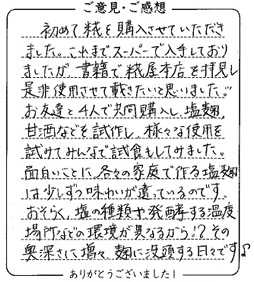 ご意見・ご感想
初めて糀を購入させていただき
ました。これまでスーパーで入手しており
ましたが、書籍で糀屋本店を拝見し
是非使用させて戴きたいと思いました。
お友達と4人で共同購入し、塩麹、
甘酒などを試作し、様々な使用を
試みてみんなで試食もしてみました。
面白いことに、各々の家庭で作る塩麹
は少しずつ味わいが違っているのです。
おそらく、塩の種類や発酵する温度
場所などの環境が異なるから!?その
奥深さに増々、麹に没頭する日々です♪
ありがとうございました!